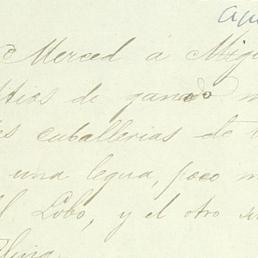 Merced a Migu
sitios de ganado m
caballerias de t
una legua, poco m
Lobo, y el otro